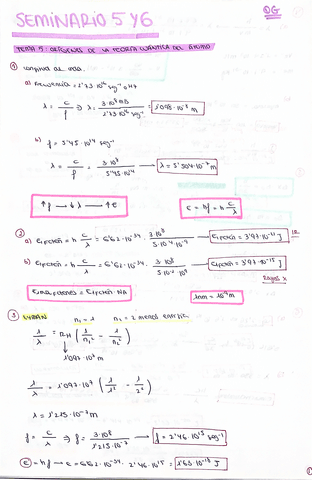 SEMINARIO 5 y 6
TEMA 5. ORÍGENES DE LA TEORÍA CUÁNTICA DEL ÁTOMO
① Longitud de onda.
a) Frecuencia = 2'73·10¹⁶ seg⁻¹ o Hz
λ = c/f ⇒ λ = 3·10⁸ m/s / 2'73·10¹⁶ seg⁻¹ = 1'098·10⁻⁸ m
b) f = 5'45·10¹⁴ seg⁻¹
λ = c/f = 3·10⁸ / 5'45·10¹⁴ → λ = 5'504·10⁻⁷ m
↑f → ↓λ → ↑E
E = hf = h c/λ
② a) E fotón = h c/λ = 6'62·10⁻³⁴ ·
b) E fotón = h c/λ = 6'62·10⁻³⁴ ·
Rayos X
E mol fotones = E fotón · NA
1nm = 10⁻⁹ m
③ LYMAN n₁ = 1 n₂ = 2 menos energía
1/λ = R_H (1/n₁² - 1/n₂²)
1'097·10⁷ m
1/λ = 1'097·10⁷ (1/1² - 1/2²)
λ = 1'215·10⁻⁷ m
f = c/λ ⇒ f = 3·10⁸ / 1'215·10⁻⁷ → f = 2'46·10¹⁵ seg⁻¹
E = hf → E = 6'62·10⁻³⁴ · 2'46·10¹⁵ = 1'63·10⁻¹⁸ J